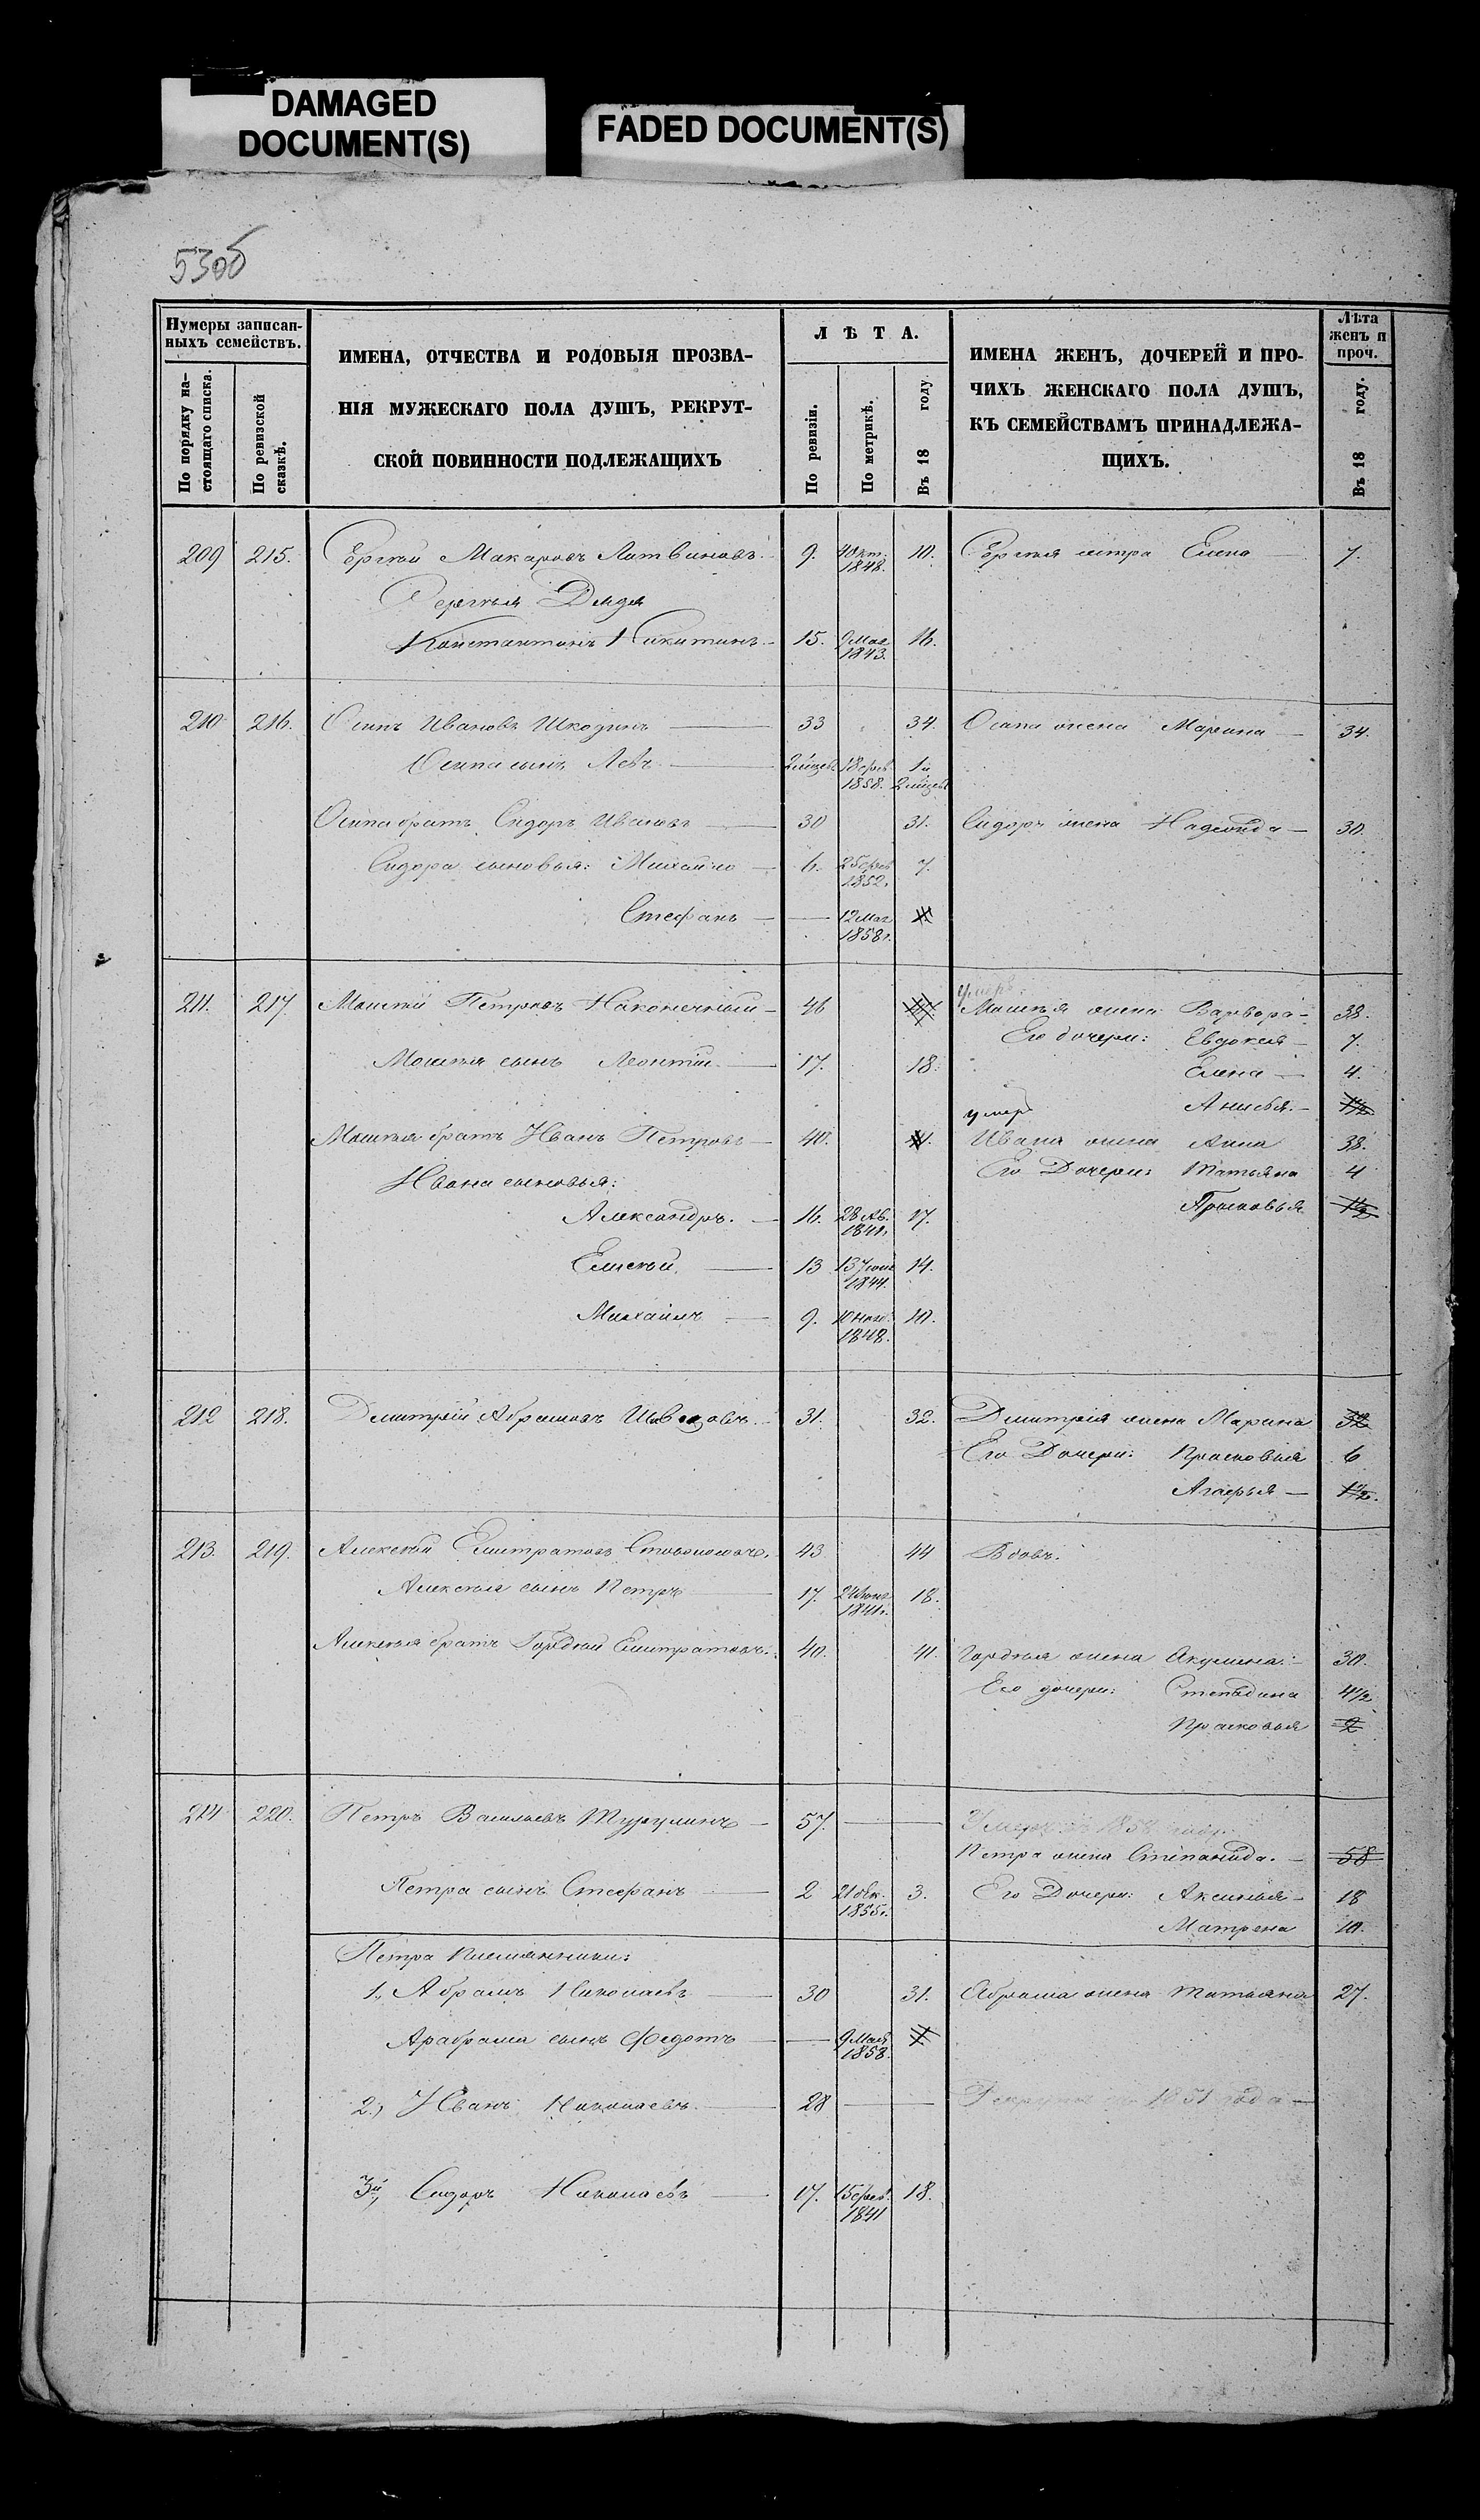 DAMAGED
DOCUMENT(S)
FADED DOCUMENT(S)
53об
Нумеры записан-
ныхъ семействъ.
По порядку на-
стоящаго списка.
По ревизской
сказкѣ.
ИМЕНА, ОТЧЕСТВА И РОДОВЫЯ ПРОЗВА-
НІЯ МУЖЕСКАГО ПОЛА ДУШЪ, РЕКРУТ-
СКОЙ ПОВИННОСТИ ПОДЛЕЖАЩИХЪ
ЛѢТА.
По ревизіи.
По метрикѣ.
Въ 18 году
ИМЕНА ЖЕНЪ, ДОЧЕРЕЙ И ПРО-
ЧИХЪ ЖЕНСКАГО ПОЛА ДУШЪ,
КЪ СЕМЕЙСТВАМЪ ПРИНАДЛЕЖА-
ЩИХЪ.
Лѣта
женъ и
проч.
Въ 18 году.
209 215. Сергѣй Макаровъ Литвиновъ. 9. 4 Окт. 1848. 10. Сергѣя сестра Елена 7.
Сергѣя Дядя
Константинъ Никитинъ 15. 9 Мая 1843. 16.
210 216. Осипъ Ивановъ 33 34. Осипа жена Марина 34.
Осипа сынъ Левъ 2 мѣсяц. 18 фев 1858. 1 и 2 мѣсяц.
Осипа братъ Сидоръ Ивановъ 30 31. Сидора жена 30.
Сидора сыновья: Михайло 6. 25 фев 1852. 7.
Стефанъ — 12 Мая 1858 г.
211. 217 Моисей Петровъ Наконечный 46 умеръ. Моисѣя жена Варвара 38.
Его дочери: Евдокия 7.
Моисѣя сынъ Леонтій 17. 18. Елена 4.
Анисья. 1/2
умеръ
Моисѣя братъ Иванъ Петровъ 40. 41. Ивана жена Анна 38.
Ивана сыновья: Его Дочери: Татьяна 4
Александръ. 16. 28 Ав. 1841. 17. Прасковья 1/2
Елисѣй. 13 13 Июня 1844. 14.
Михаилъ 9. 10 Нояб. 1848. 10.
212 218. Дмитрій Абрамовъ Шведовъ. 31. 32. Дмитрія жена Марина 32
Его Дочери: Прасковья 6
Агафья 1/2.
213. 219. Алексѣй Евстратовъ 43 44 Вдовъ.
Алексѣя сынъ Петръ 17. 24 Июня 1841. 18.
Алексѣя братъ Гордѣй Евстратовъ. 40. 41. Гордѣя жена Акулина. 30.
Его дочери: Степанида 4 1/2
Прасковья 2
214 220. Петръ Васильевъ 57. — Умеръ въ 1858 году.
Петра жена Степанида. 58
Петра сынъ Стефанъ 2 21 Дек. 1855. 3. Его Дочери: Аксинья 18
Матрена 10.
Петра племянники:
1, Абрамъ Николаевъ 30 31. Абрама жена Татьяна 27.
Арабрама сынъ Федотъ — 9 Мая 1858.
2, Иванъ Николаевъ. 28 — 1851 года
3й, Сидоръ Николаевъ 17. 15 фев. 1841 18.